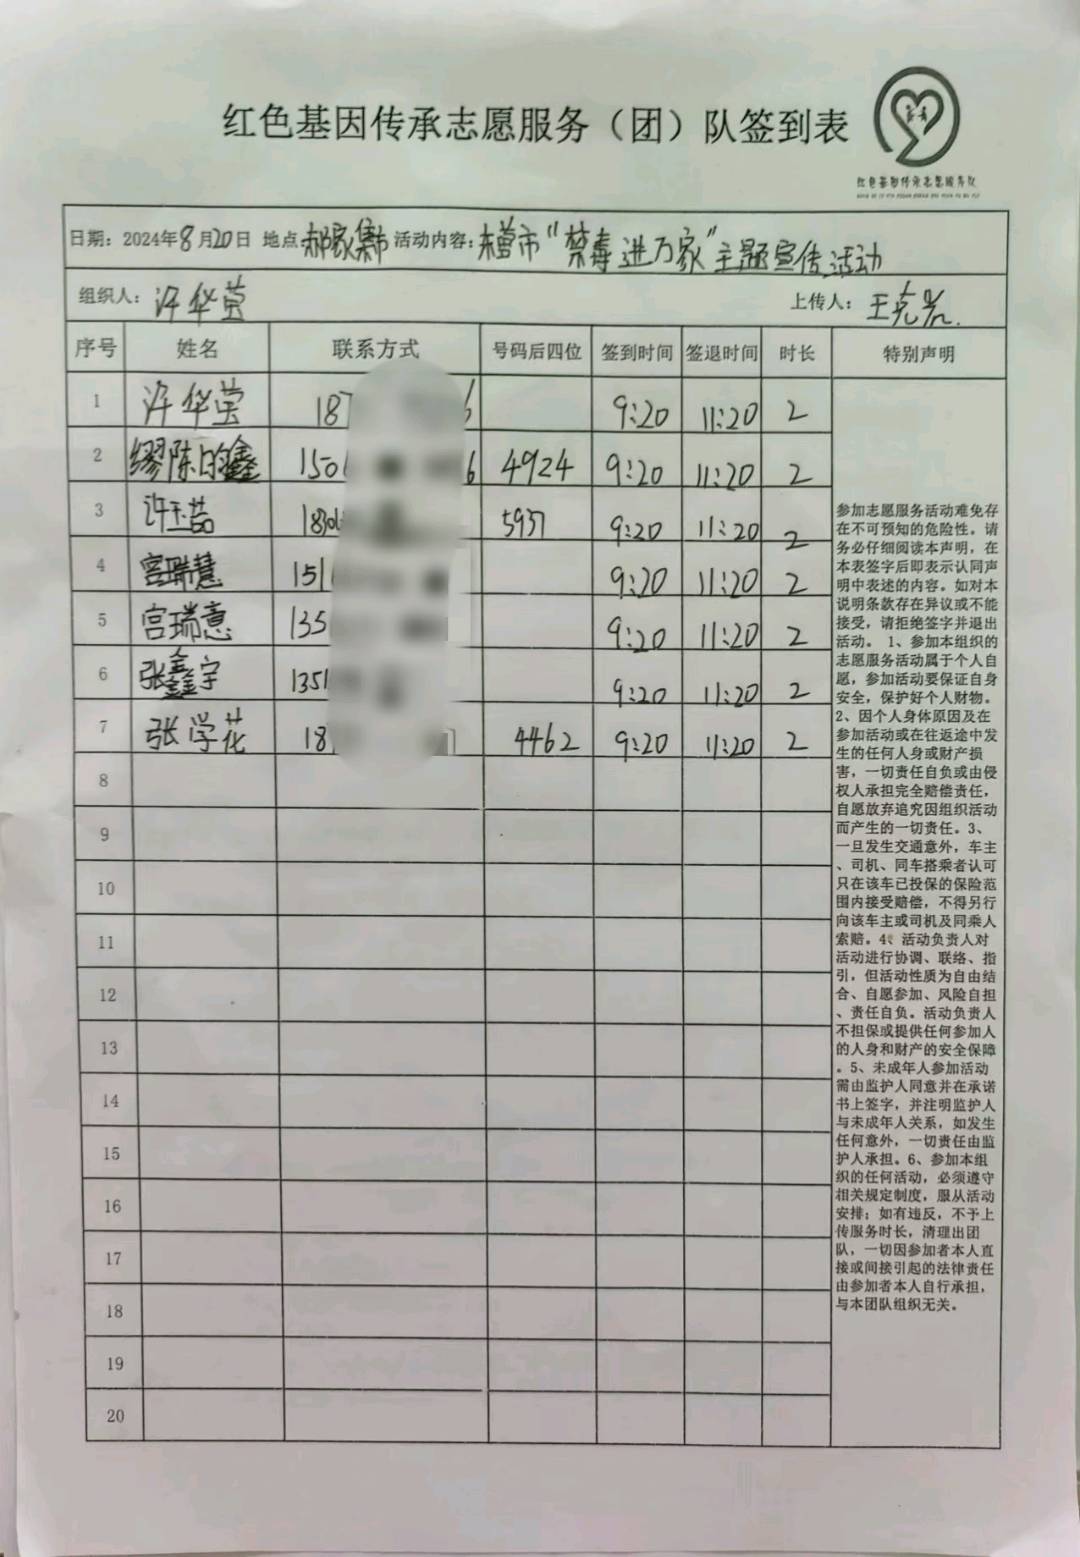 红色基因传承志愿服务（团）队签到表
红色基因传承志愿服务队
日期：2024年8月20日 地点：郝家集市 活动内容：未曾市“禁毒进万家”主题宣传活动
组织人：许华莹 上传人：王克
序号 姓名 联系方式 号码后四位 签到时间 签退时间 时长 特别声明
1 许华莹 187 6 9:20 11:20 2
2 缪陈 鑫 150 6 4924 9:20 11:20 2
3 许玉喆 18 5937 9:20 11:20 2
4 宫瑞慧 151 9:20 11:20 2
5 宫瑞意 135 9:20 11:20 2
6 张鑫宇 1351 9:20 11:20 2
7 张学花 18 4462 9:20 11:20 2
8
9
10
11
12
13
14
15
16
17
18
19
20
参加志愿服务活动难免存
在不可预知的危险性。请
务必仔细阅读本声明，在
本表签字后即表示认同声
明中表述的内容。如对本
说明条款存在异议或不能
接受，请拒绝签字并退出
活动。 1、参加本组织的
志愿服务活动属于个人自
愿，参加活动要保证自身
安全，保护好个人财物。
2、因个人身体原因及在
参加活动或在往返途中发
生的任何人身或财产损
害，一切责任自负或由侵
权人承担完全赔偿责任，
自愿放弃追究因组织活动
而产生的一切责任。3、
一旦发生交通意外，车主
、司机、同车搭乘者认可
只在该车已投保的保险范
围内接受赔偿，不得另行
向该车主或司机及同乘人
索赔。4、活动负责人对
活动进行协调、联络、指
引，但活动性质为自由结
合、自愿参加、风险自担
、责任自负。活动负责人
不担保或提供任何参加人
的人身和财产的安全保障
。5、未成年人参加活动
需由监护人同意并在承诺
书上签字，并注明监护人
与未成年人关系，如发生
任何意外，一切责任由监
护人承担。6、参加本组
织的任何活动，必须遵守
相关规定制度，服从活动
安排；如有违反，不予上
传服务时长，清理出团
队，一切因参加者本人直
接或间接引起的法律责任
由参加者本人自行承担，
与本团队组织无关。